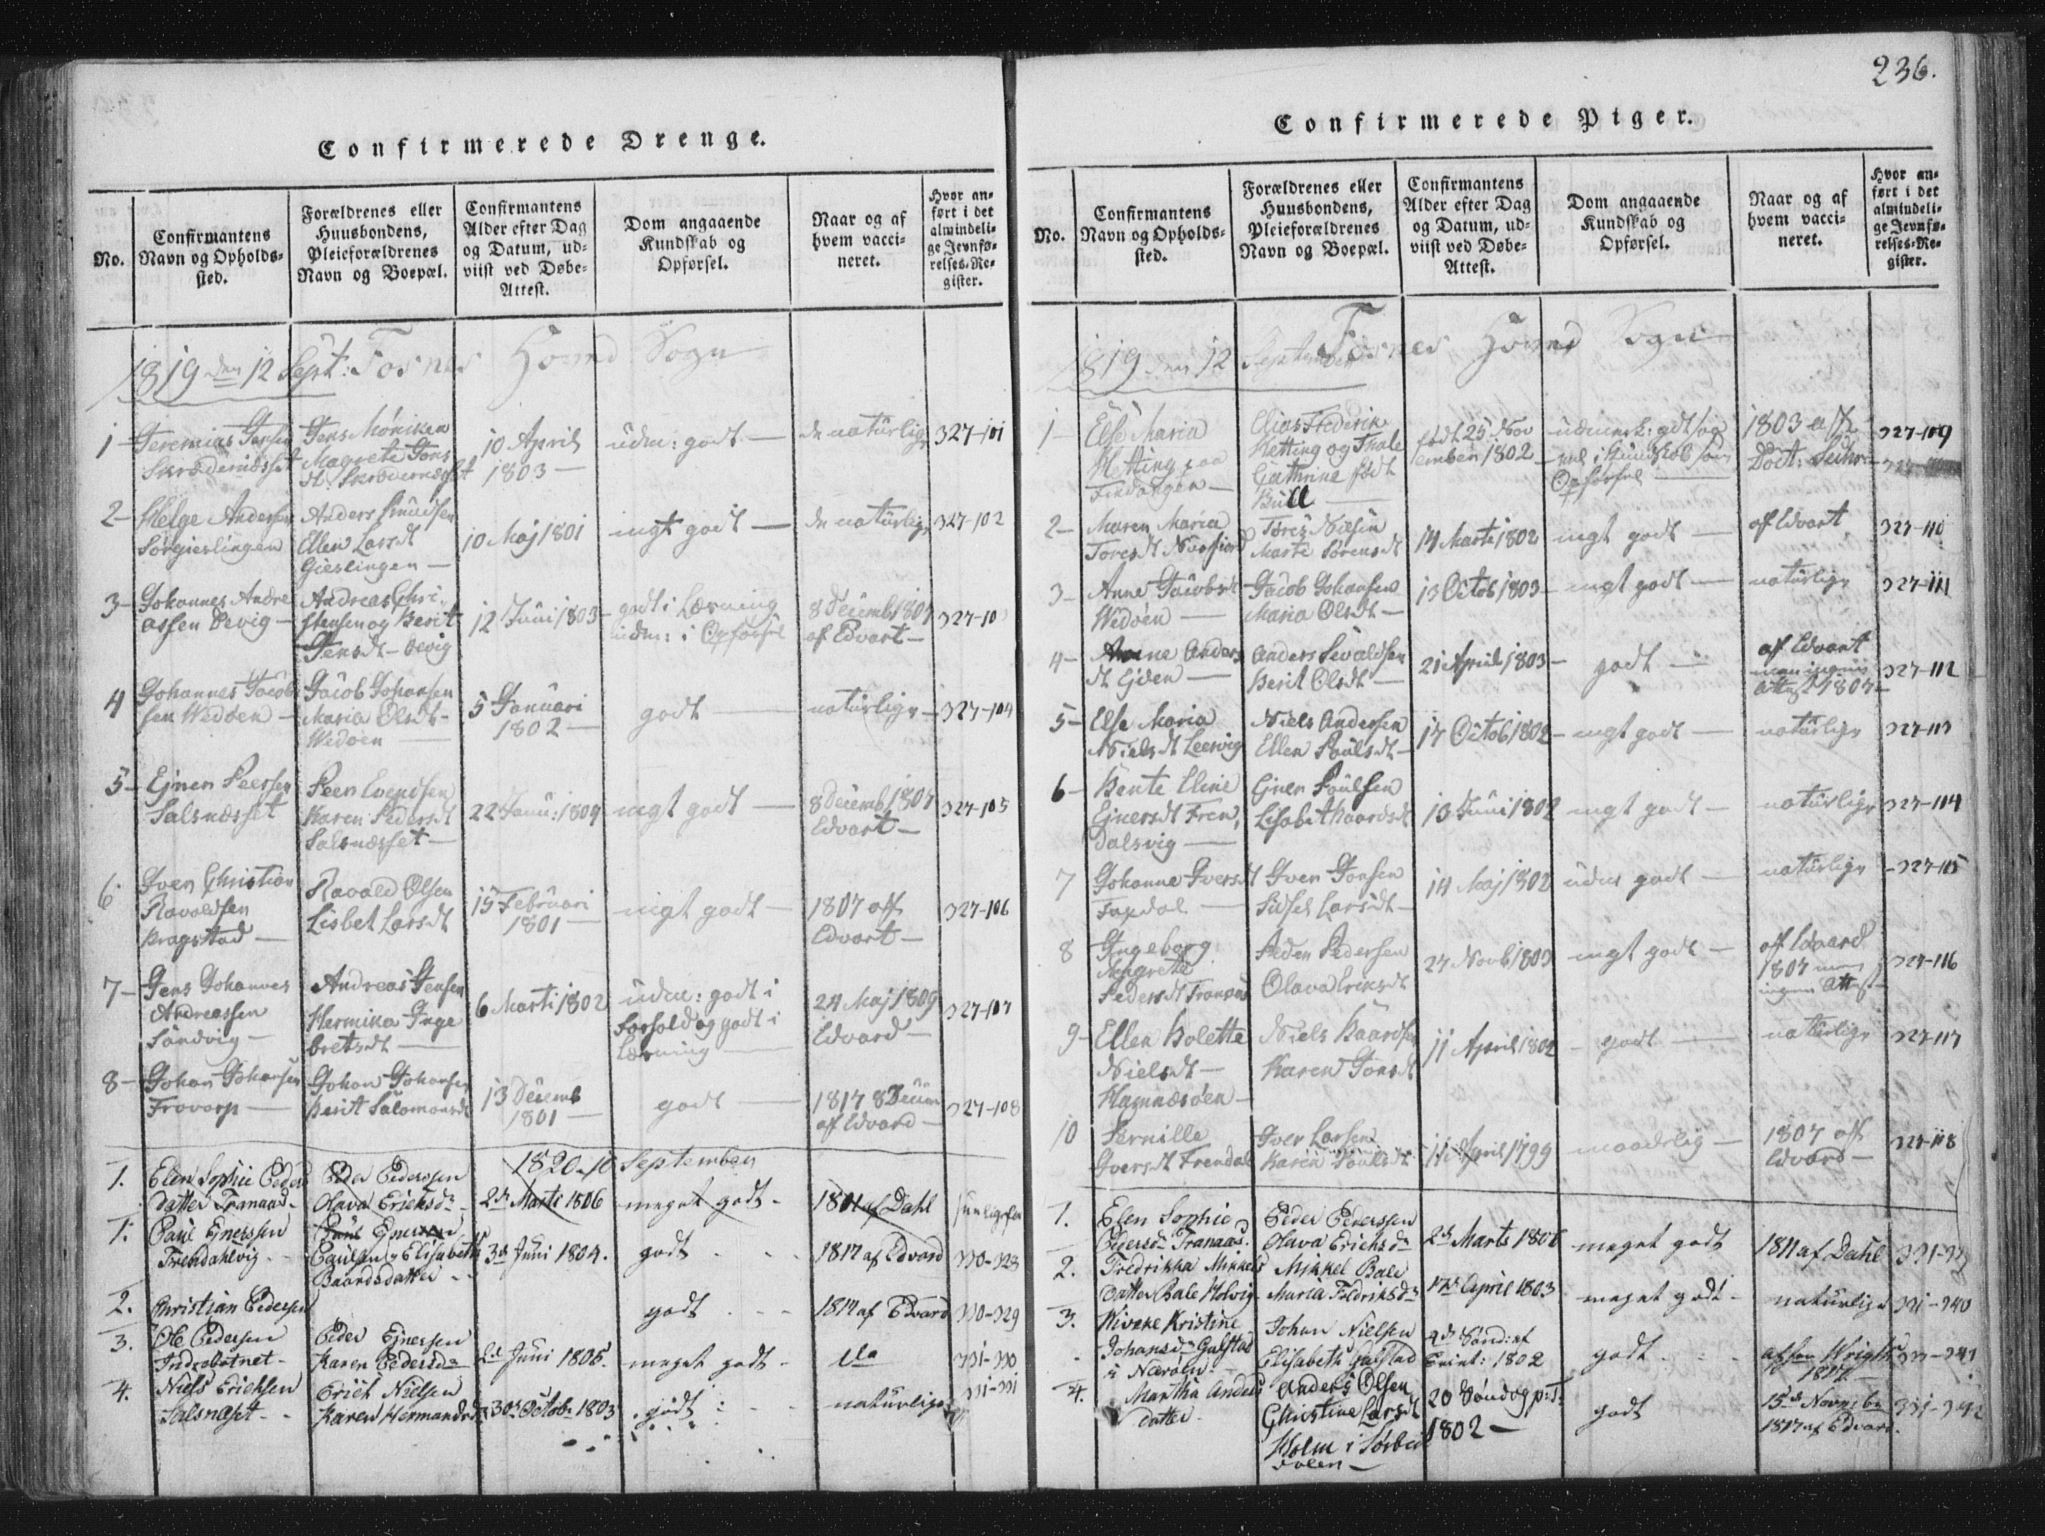 236.
Confirmerede Drenge.
No.
Confirmantens
Navn og Opholds-
sted.
Forældrenes eller
Huusbondens,
Pleieforældrenes
Navn og Boepæl.
Confirmantens
Alder efter Dag
og Datum, ud-
viist ved Døbe-
Attest.
Dom angaaende
Kundskab og
Opførsel.
Naar og af
hvem vacci-
neret.
Hvor an-
ført i det
almindeli-
ge Jevnfø-
relses-Re-
gister.
1819 den 12 Sept: Fosnes Hoved Sogn
1 -
Jeremias Jensen
Skrødernesset
Jens Mønichen
Magrete Jons
dt. Skrødernesset
10 April
1803 -
udm: godt -
de naturlige
327-101
2 -
Helge Andersen
Sørgieslingen
Anders Knudsen
Ellen Larsdt
Gieslingen -
10 Maj 1801
mgt godt -
de naturlige
327-102
3 -
Johannes Andre
assen Devig -
Andreas Chri-
stensen og Berit
Jensdt - Devig
12 Juni 1803 -
godt i Læsning
udm: i Opførsel
8 Decemb 1807
af Edvart -
327-10
4
Johannes Jacob
sen Wedøen -
Jacob Johansen
Maria Olsdt -
Wedøen -
5 Januari
1802 -
godt -
naturlige -
327-104
5 -
Ejner Peersen
Salsnæsset
Peer Evendsen
Karen Pedersdt
Salsnæsset -
22 Janu: 1804
mgt godt -
8 Decemb 1807
Edvart -
327-105
6.
Iver Christian
Ravaldsen
Kragstad -
Ravald Olsen
Lisbet Larsdt
15 Februari
1801 -
mgt godt -
1807 af
Edvart -
327-106
7 -
Jens Johannes
Andreassen
Sandvig -
Andreas Jensen
Hermika Inge
bretsdt -
6 Marti 1802
udm: godt i
Forhold og godt i
Læsning -
24 Maj 1809
Edvard -
327-107
8 -
Johan Johansen
Fravarp -
Johan Johansen
Berit Salomonsdt
13 Decemb
1801 -
godt -
1817 8 Decem
af Edvard -
327-108
1820. 10 September
1.
Elen Sophie Peders
datter Tranaas -
Peder Pedersen
Olava Eriksdr -
2dn Marts 1806
meget godt -
1801 af Dahl
1.
Paul Ejnersen
Frendahlvig -
Paul Ejnersen
Paulsen, Elisabeth
Baardsdatter -
3d Juni 1804.
godt - - -
1817 af Edvard
330-328
2.
Christian Pedersen
godt - - -
1817 af Edvard
330-329
3.
Ole Pedersen
Indrebotnet -
Peder Ejnersen
Karen Pedersdr
2d Juni 1805.
meget godt -
do
331-330
4.
Niels Erichsen
Salsnæset -
Erich Nielsen
Karen Hermansdr
30d Octobr 1803
godt : - -
naturlige
331-331
Confirmerede Piger.
No.
Confirmantens
Navn og Opholds-
sted.
Forældrenes eller
Huusbondens,
Pleieforældrenes
Navn og Boepæl.
Confirmantens
Alder efter Dag
og Datum, ud-
viist ved Døbe-
Attest.
Dom angaaende
Kundskab og
Opførsel.
Naar og af
hvem vacci-
neret.
Hvor an-
ført i det
almindeli-
ge Jevnfø-
relses-Re-
gister.
1819 den 12 September Fosnes Hoved Sogn
1 -
Else Maria
Hetting paa
Finvangen -
Elias Frederik
Hetting og Thale
Cathrine født
Bull -
født 25 Nov
ember 1802
udmerk: godt saa
vel i Kundskab som
Opførsel -
1803 af
Doct:
327-109
2 -
Maren Maria
Toresdt
Tores
Marte Sørensdt
14 Marti 1802
mgt godt -
af Edvart
327-110
3 -
Anne Jacobsdt
Wedøen -
Jacob Johansen
Maria Olsdt -
13 Octob 1803 -
mgt godt -
naturlige
327-111
4 -
Anne Anders
dt Ejden -
Anders Sevaldsen
Berit Olsdt -
21 April 1803 -
godt -
af Edvart
men ingen
Attest 1807 -
327-112
5 -
Else Maria
Nielsdt Leervig
Niels Andersen
Ellen Poulsdt -
17 Octob 1802 -
mgt godt -
naturlige
327-113
6 -
Bente Eline
Ejnersdt Fren
dalsvig -
Ejner Poulsen
Lisabit Baardsdt
13 Juni 1802
mgt godt -
naturlige
327-114
7
Johanne Iversdt
Faxdal -
Iver Jonsen
Sidsel Larsdt -
14 Maj 1802
udm godt -
naturlige
327-115
8
Ingeborg
Magrete
Pedersdt Tranaas
Peder Pedersen
Olava Eriksdt
27 Novb 1803
mgt godt -
af Edvard
1807 men
ingen Attest
327-116
9 -
Ellen Bolette
Nielsdt -
Hamnesøen -
Niels Baardsen
Karen Jonsdt
11 April 1802
- godt -
naturlige
327-117
10
Pernille
Iversdt Frendal
Iver Larsen
Karen Poulsdt
11 April 1799
maadelig -
1807 af
Edvard -
327-118
1.
Elen Sophie
Pedersdr Tranaas.
Peder Pedersen
Olava Erichsdr
2d Marts 1806
meget godt
1811 af Dahl
331-339
2.
Fredrikka Mikkels
datter Bale Holvig
Mikkel Bale
Maria Fredriksdr
17de April 1803
meget godt -
naturlige
331-340
3.
Wiveke Kristine
Johansdr Galstad
i Nærøen -
Johan Nielsen
Elisabeth Galstad
4de Sønd: ef
Trinit: 1802
godt - -
1817
331-341
4.
Martha Anders
datter -
Anders Olsen
Christine Larsdt
Holm i Sørbei
dalen -
20 Søndag p: T:
1802 -
godt
15d Novembr
1817 af Edvard.
331-342